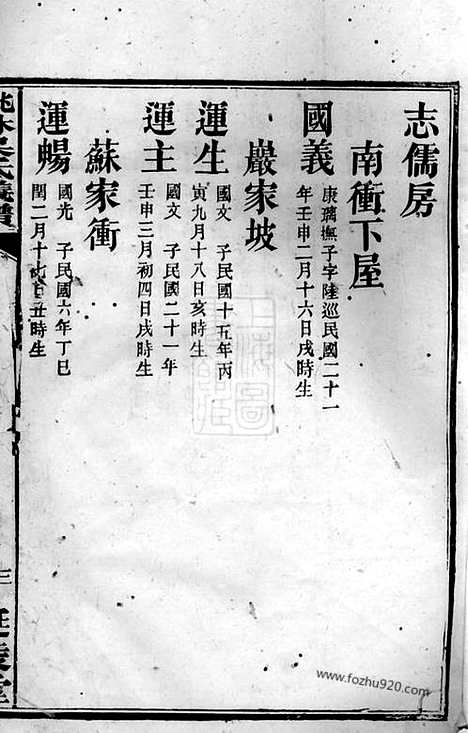 志儒房
南衝下屋
國義 康璃撫子字陸巡民國二十一
年壬申二月十六日戌時生
巖家坡
運生 國文 子民國十五年丙
寅九月十八日亥時生
運主 國文 子民國二十一年
壬申三月初四日戌時生
蘇家衝
運暢 國光 子民國六年丁巳
閏二月十七日丑時生
氏義譜
三
延陵堂
www.fozhu920.com